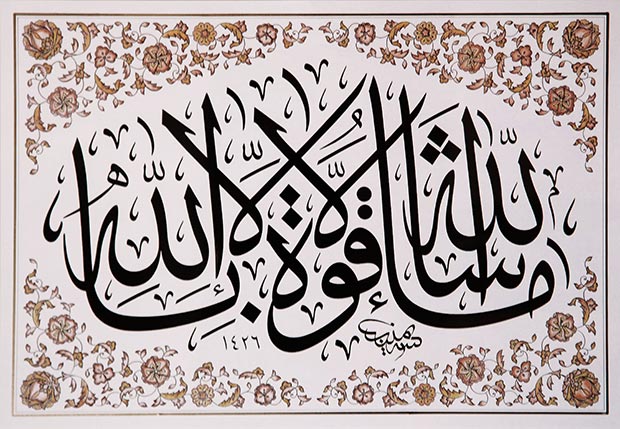 ما شاء الله لا قوة إلا بالله
١٤٢٦